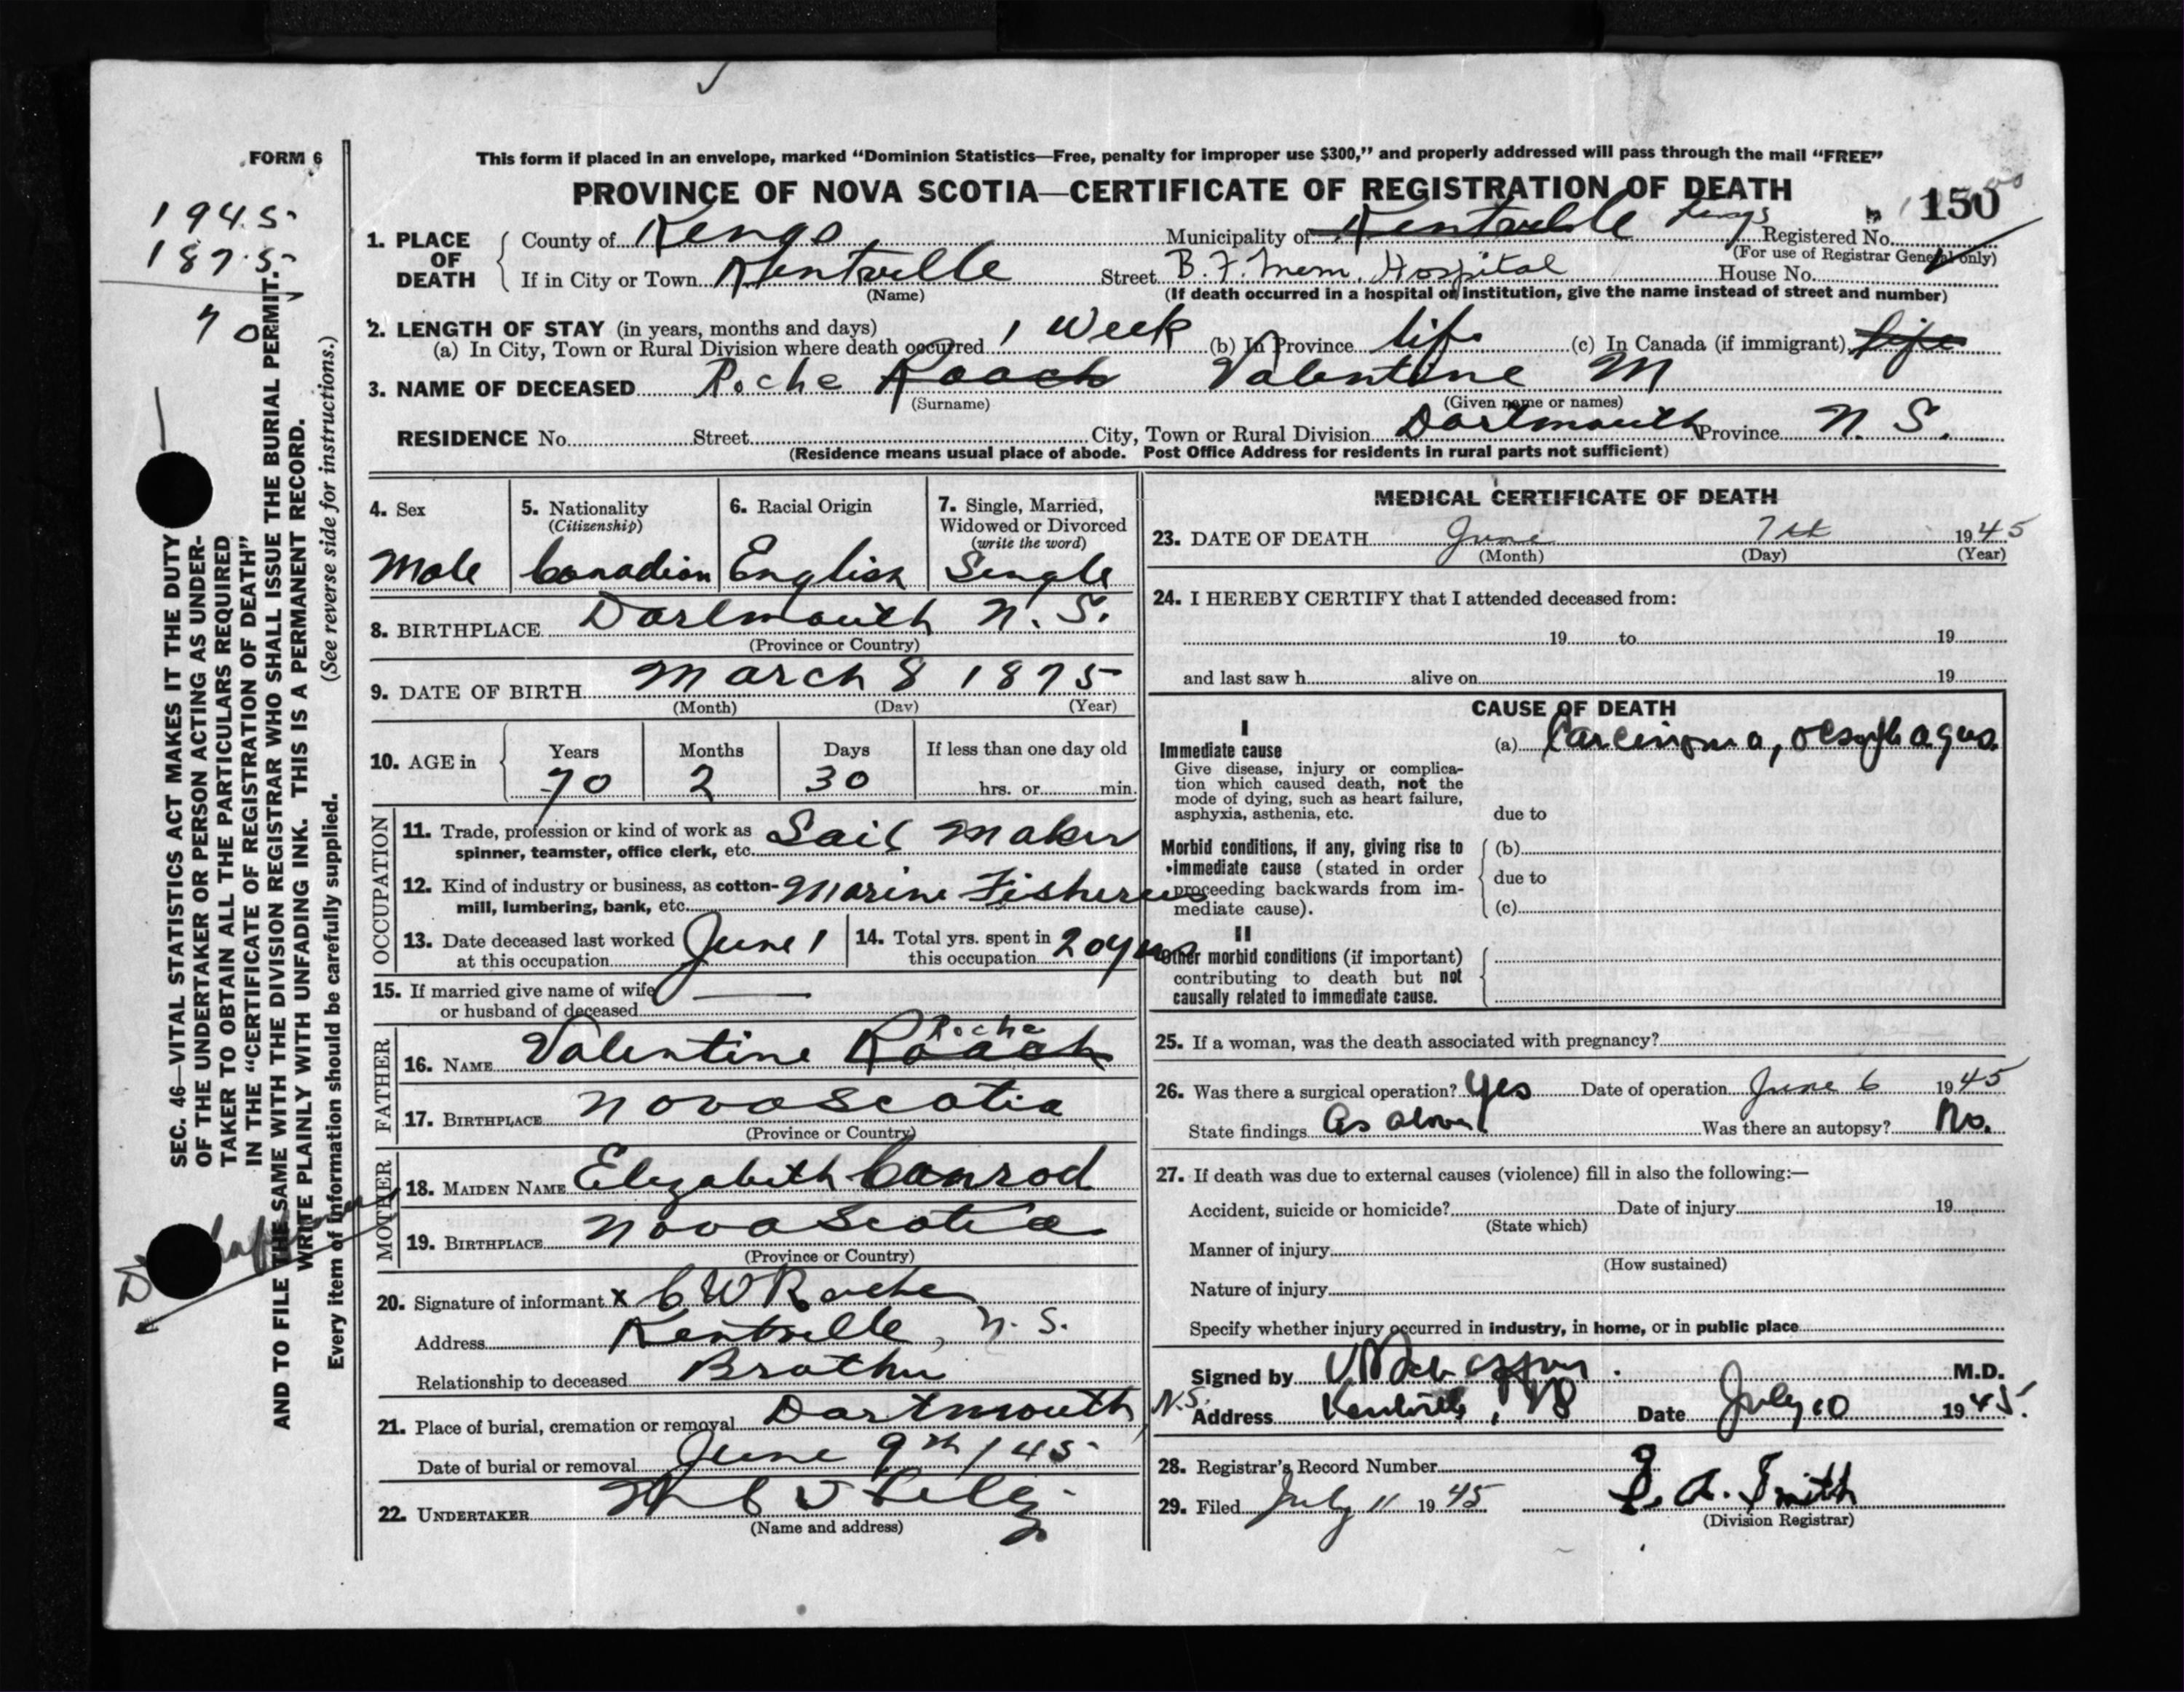 FORM 6
This form if placed in an envelope, marked “Dominion Statistics—Free, penalty for improper use $300,” and properly addressed will pass through the mail “FREE”
PROVINCE OF NOVA SCOTIA—CERTIFICATE OF REGISTRATION OF DEATH
150
1945
1875
70
1. PLACE OF DEATH
County of Kings Municipality of Kentville Kings Registered No.
(For use of Registrar General only)
If in City or Town Kentville Street B. F. Mem. Hospital House No.
(Name) (If death occurred in a hospital or institution, give the name instead of street and number)
2. LENGTH OF STAY (in years, months and days)
(a) In City, Town or Rural Division where death occurred 1 Week (b) In Province life (c) In Canada (if immigrant) life
3. NAME OF DECEASED Roche Roach Valentine M
(Surname) (Given name or names)
RESIDENCE No. Street City, Town or Rural Division Dartmouth Province N. S.
(Residence means usual place of abode. Post Office Address for residents in rural parts not sufficient)
4. Sex
Male
5. Nationality
(Citizenship)
Canadian
6. Racial Origin
English
7. Single, Married,
Widowed or Divorced
(write the word)
Single
8. BIRTHPLACE Dartmouth N. S.
(Province or Country)
9. DATE OF BIRTH March 8 1875
(Month) (Day) (Year)
10. AGE in
Years Months Days If less than one day old
70 2 30 hrs. or min.
OCCUPATION
11. Trade, profession or kind of work as Sail Maker
spinner, teamster, office clerk, etc.
12. Kind of industry or business, as cotton- Marine Fisheries
mill, lumbering, bank, etc.
13. Date deceased last worked June 1
at this occupation
14. Total yrs. spent in 20 yrs
this occupation
15. If married give name of wife —
or husband of deceased
FATHER
Roche
16. NAME Valentine Roach
17. BIRTHPLACE Nova Scotia
(Province or Country)
MOTHER
18. MAIDEN NAME Elizabeth Conrod
19. BIRTHPLACE Nova Scotia
(Province or Country)
20. Signature of informant x C W Roche
Address Kentville, N. S.
Relationship to deceased Brother
21. Place of burial, cremation or removal Dartmouth, N.S.
Date of burial or removal June 9th / 45
22. UNDERTAKER
(Name and address)
MEDICAL CERTIFICATE OF DEATH
23. DATE OF DEATH June 7th 1945
(Month) (Day) (Year)
24. I HEREBY CERTIFY that I attended deceased from:
19 to 19
and last saw h alive on 19
CAUSE OF DEATH
I
Immediate cause
Give disease, injury or complica-
tion which caused death, not the
mode of dying, such as heart failure,
asphyxia, asthenia, etc.
(a) Carcinoma, oesophagus
due to
Morbid conditions, if any, giving rise to
immediate cause (stated in order
proceeding backwards from im-
mediate cause).
(b)
due to
(c)
II
Other morbid conditions (if important)
contributing to death but not
causally related to immediate cause.
25. If a woman, was the death associated with pregnancy?
26. Was there a surgical operation? Yes Date of operation June 6 1945
State findings As above Was there an autopsy? No.
27. If death was due to external causes (violence) fill in also the following:—
Accident, suicide or homicide? Date of injury 19
(State which)
Manner of injury
(How sustained)
Nature of injury
Specify whether injury occurred in industry, in home, or in public place
Signed by M.D.
Address Kentville, NS Date July 10 1945.
28. Registrar's Record Number 9
29. Filed July 11 1945 E. A. Smith
(Division Registrar)
SEC. 46—VITAL STATISTICS ACT MAKES IT THE DUTY
OF THE UNDERTAKER OR PERSON ACTING AS UNDER-
TAKER TO OBTAIN ALL THE PARTICULARS REQUIRED
IN THE “CERTIFICATE OF REGISTRATION OF DEATH”
AND TO FILE THE SAME WITH THE DIVISION REGISTRAR WHO SHALL ISSUE THE BURIAL PERMIT.
WRITE PLAINLY WITH UNFADING INK. THIS IS A PERMANENT RECORD.
Every item of information should be carefully supplied. (See reverse side for instructions.)